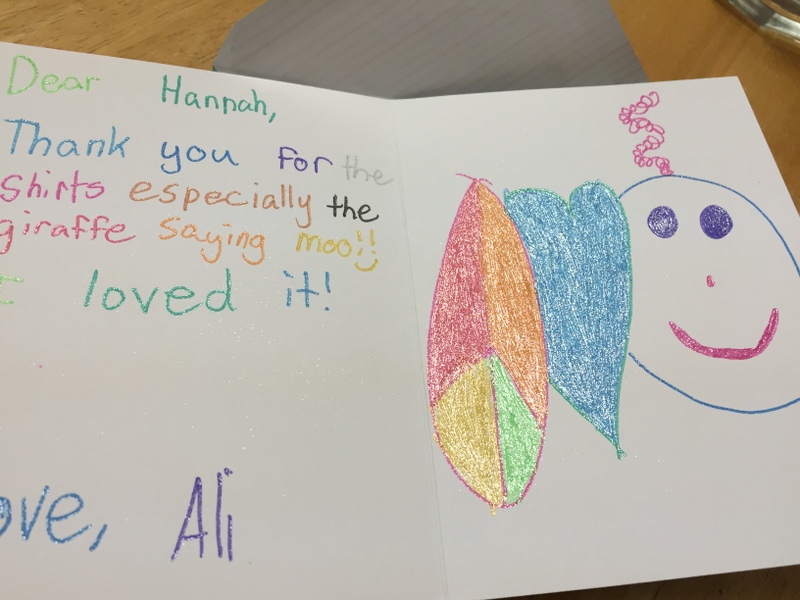 Dear Hannah,
Thank you for the
Shirts especially the
giraffe saying moo!!
I loved it!
ove, Ali